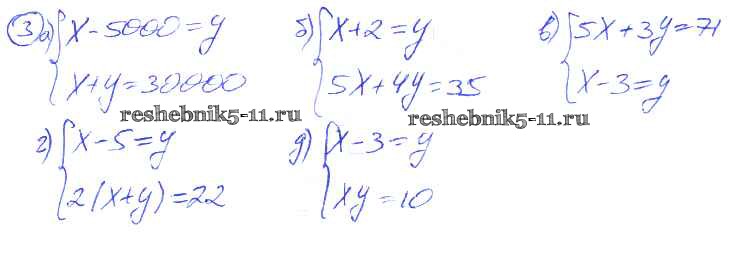 3 а) { x - 5000 = y
x + y = 30000
б) { x + 2 = y
5x + 4y = 35
в) { 5x + 3y = 71
x - 3 = y
reshebnik5-11.ru
reshebnik5-11.ru
г) { x - 5 = y
2(x + y) = 22
д) { x - 3 = y
xy = 10